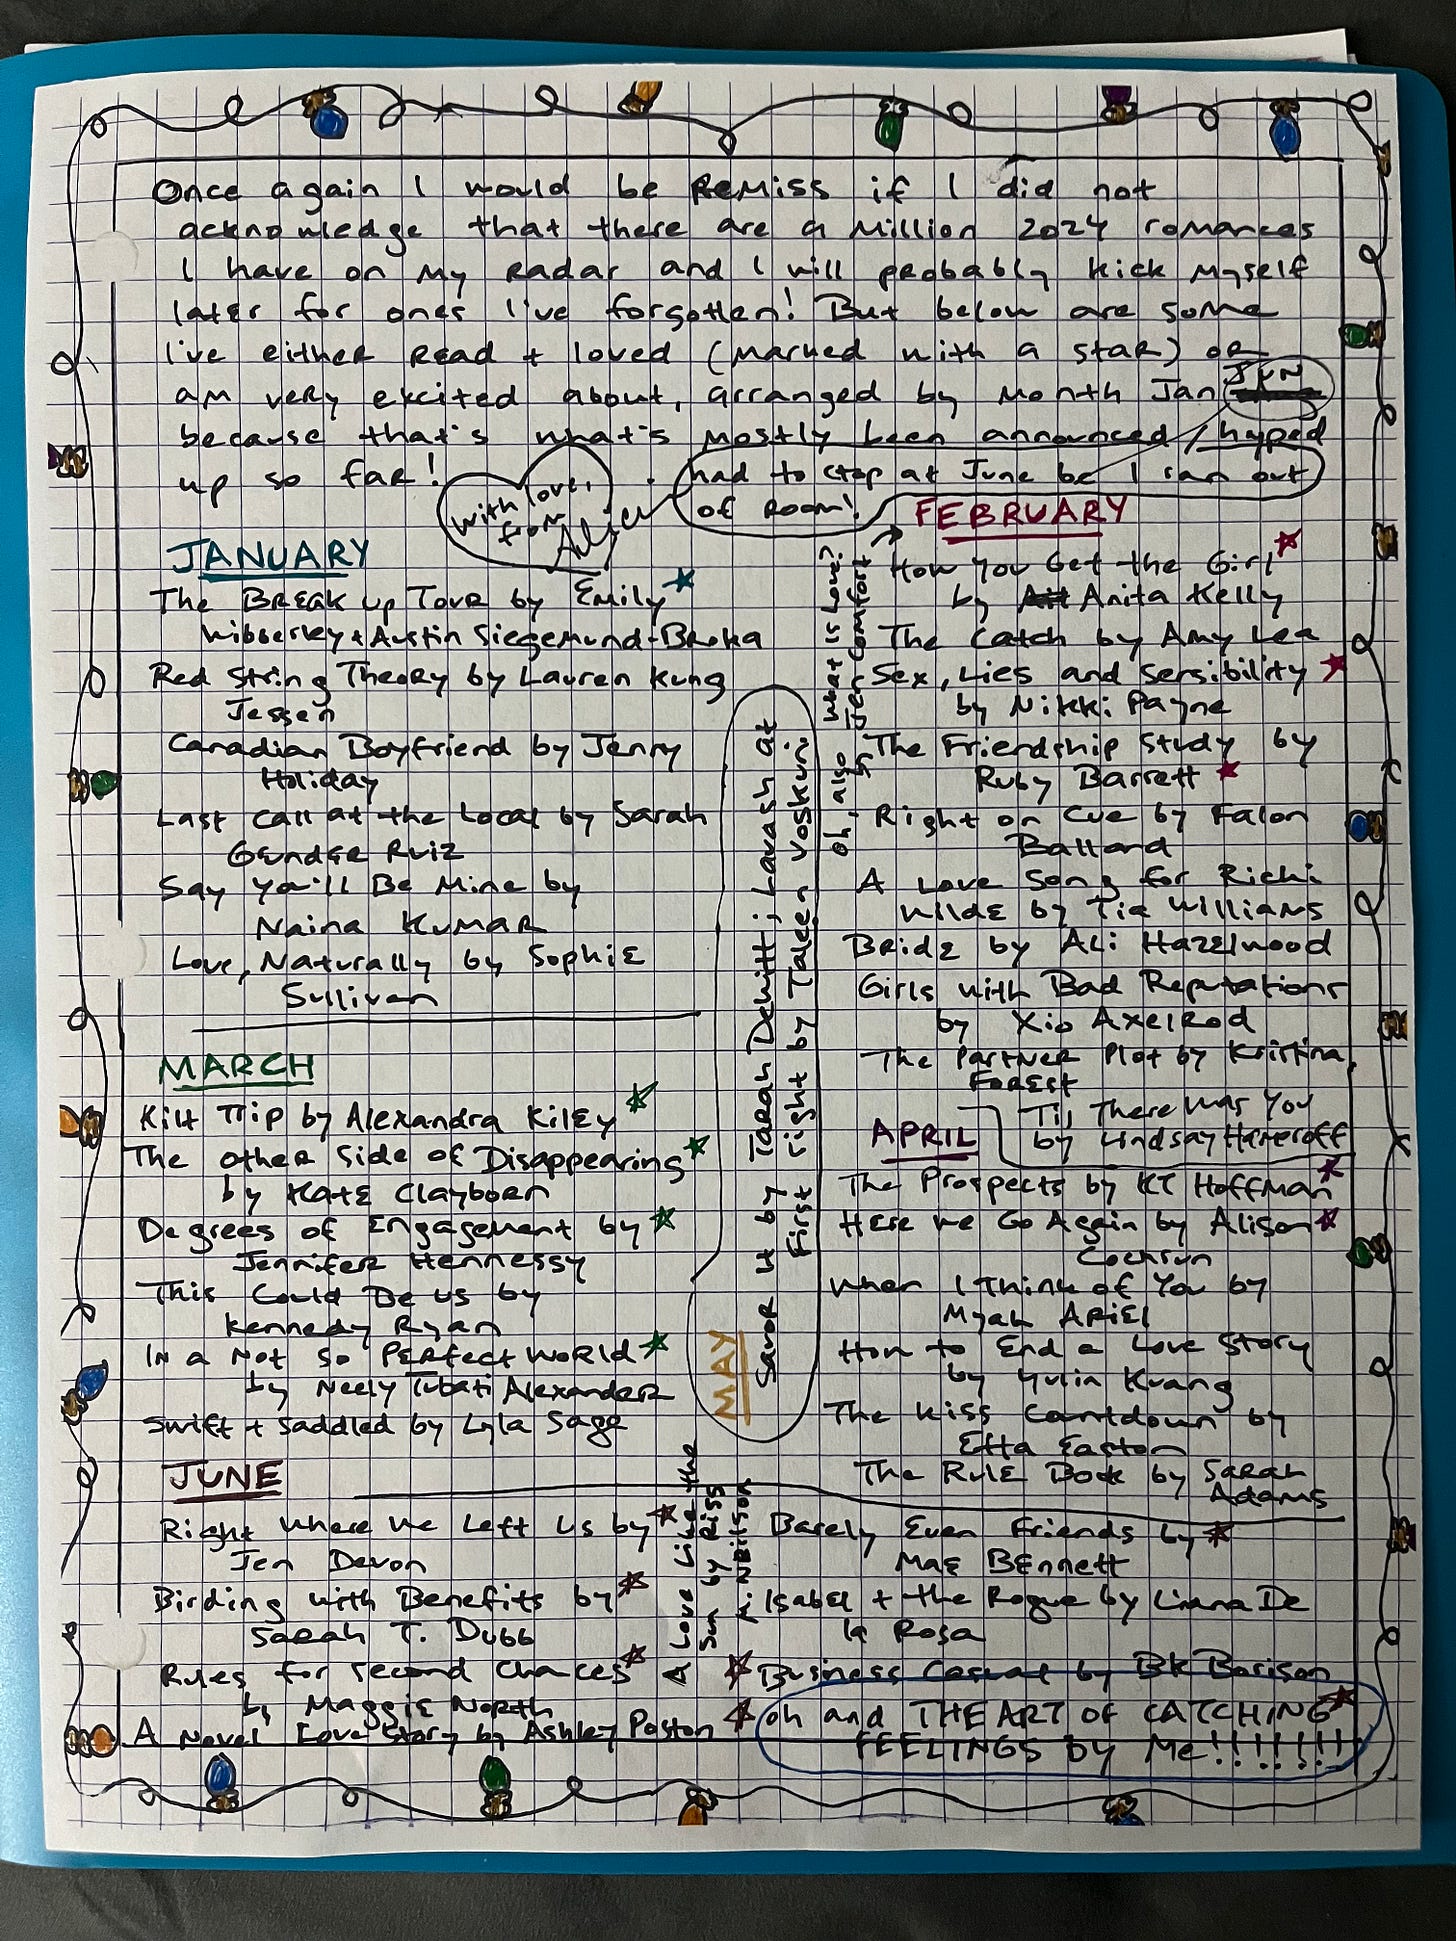 Once again I would be remiss if I did not
acknowledge that there are a million 2024 romances
I have on my radar and I will probably kick myself
later for ones I've forgotten! But below are some
I've either read + loved (marked with a star) or
am very excited about, arranged by month Jan JUN
because that's what's mostly been announced / hyped
up so far!
had to stop at June bc I ran out
of room!
with love,
from
JANUARY
The Break Up Tour by Emily
Wibberley + Austin Siegemund-Broka
Red String Theory by Lauren Kung
Jessen
Canadian Boyfriend by Jenny
Holiday
Last Call at the Local by Sarah
Grunder Ruiz
Say You'll Be Mine by
Naina Kumar
Love, Naturally by Sophie
Sullivan
FEBRUARY
How You Get the Girl
by Anita Kelly
The Catch by Amy Lea
Sex, Lies and Sensibility
by Nikki Payne
The Friendship Study by
Ruby Barrett
Right on Cue by Falon
Ballard
A Love Song for Ricki
Wilde by Tia Williams
Bride by Ali Hazelwood
Girls with Bad Reputations
by Xio Axelrod
The Partner Plot by Kristina
Forest
oh, also What Is Love?
by Jen Comfort
MARCH
Kilt Trip by Alexandra Kiley
The Other Side of Disappearing
by Kate Clayborn
Degrees of Engagement by
Jennifer Hennessy
This Could Be Us by
Kennedy Ryan
In a Not So Perfect World
by Neely Tubati Alexander
Swift + Saddled by Lyla Sage
APRIL
Til There Was You
by Lindsay Hameroff
The Prospects by KT Hoffman
Here We Go Again by Alison
Cochrun
When I Think of You by
Myah Ariel
How to End a Love Story
by Yulin Kuang
The Kiss Countdown by
Etta Easton
The Rule Book by Sarah
Adams
MAY
Savor It by Tarah Dewitt; Lavash at
First Sight by Taleen Voskuni
JUNE
Right Where We Left Us by
Jen Devon
Birding with Benefits by
Sarah T. Dubb
Rules for Second Chances
by Maggie North
A Novel Love Story by Ashley Poston
A Love Like the
Sun by Riss
M. Neilson
Barely Even Friends by
Mae Bennett
Isabel + the Rogue by Liana De
la Rosa
Business Casual by BK Borison
oh and THE ART OF CATCHING
FEELINGS BY ME!!!!!!!!